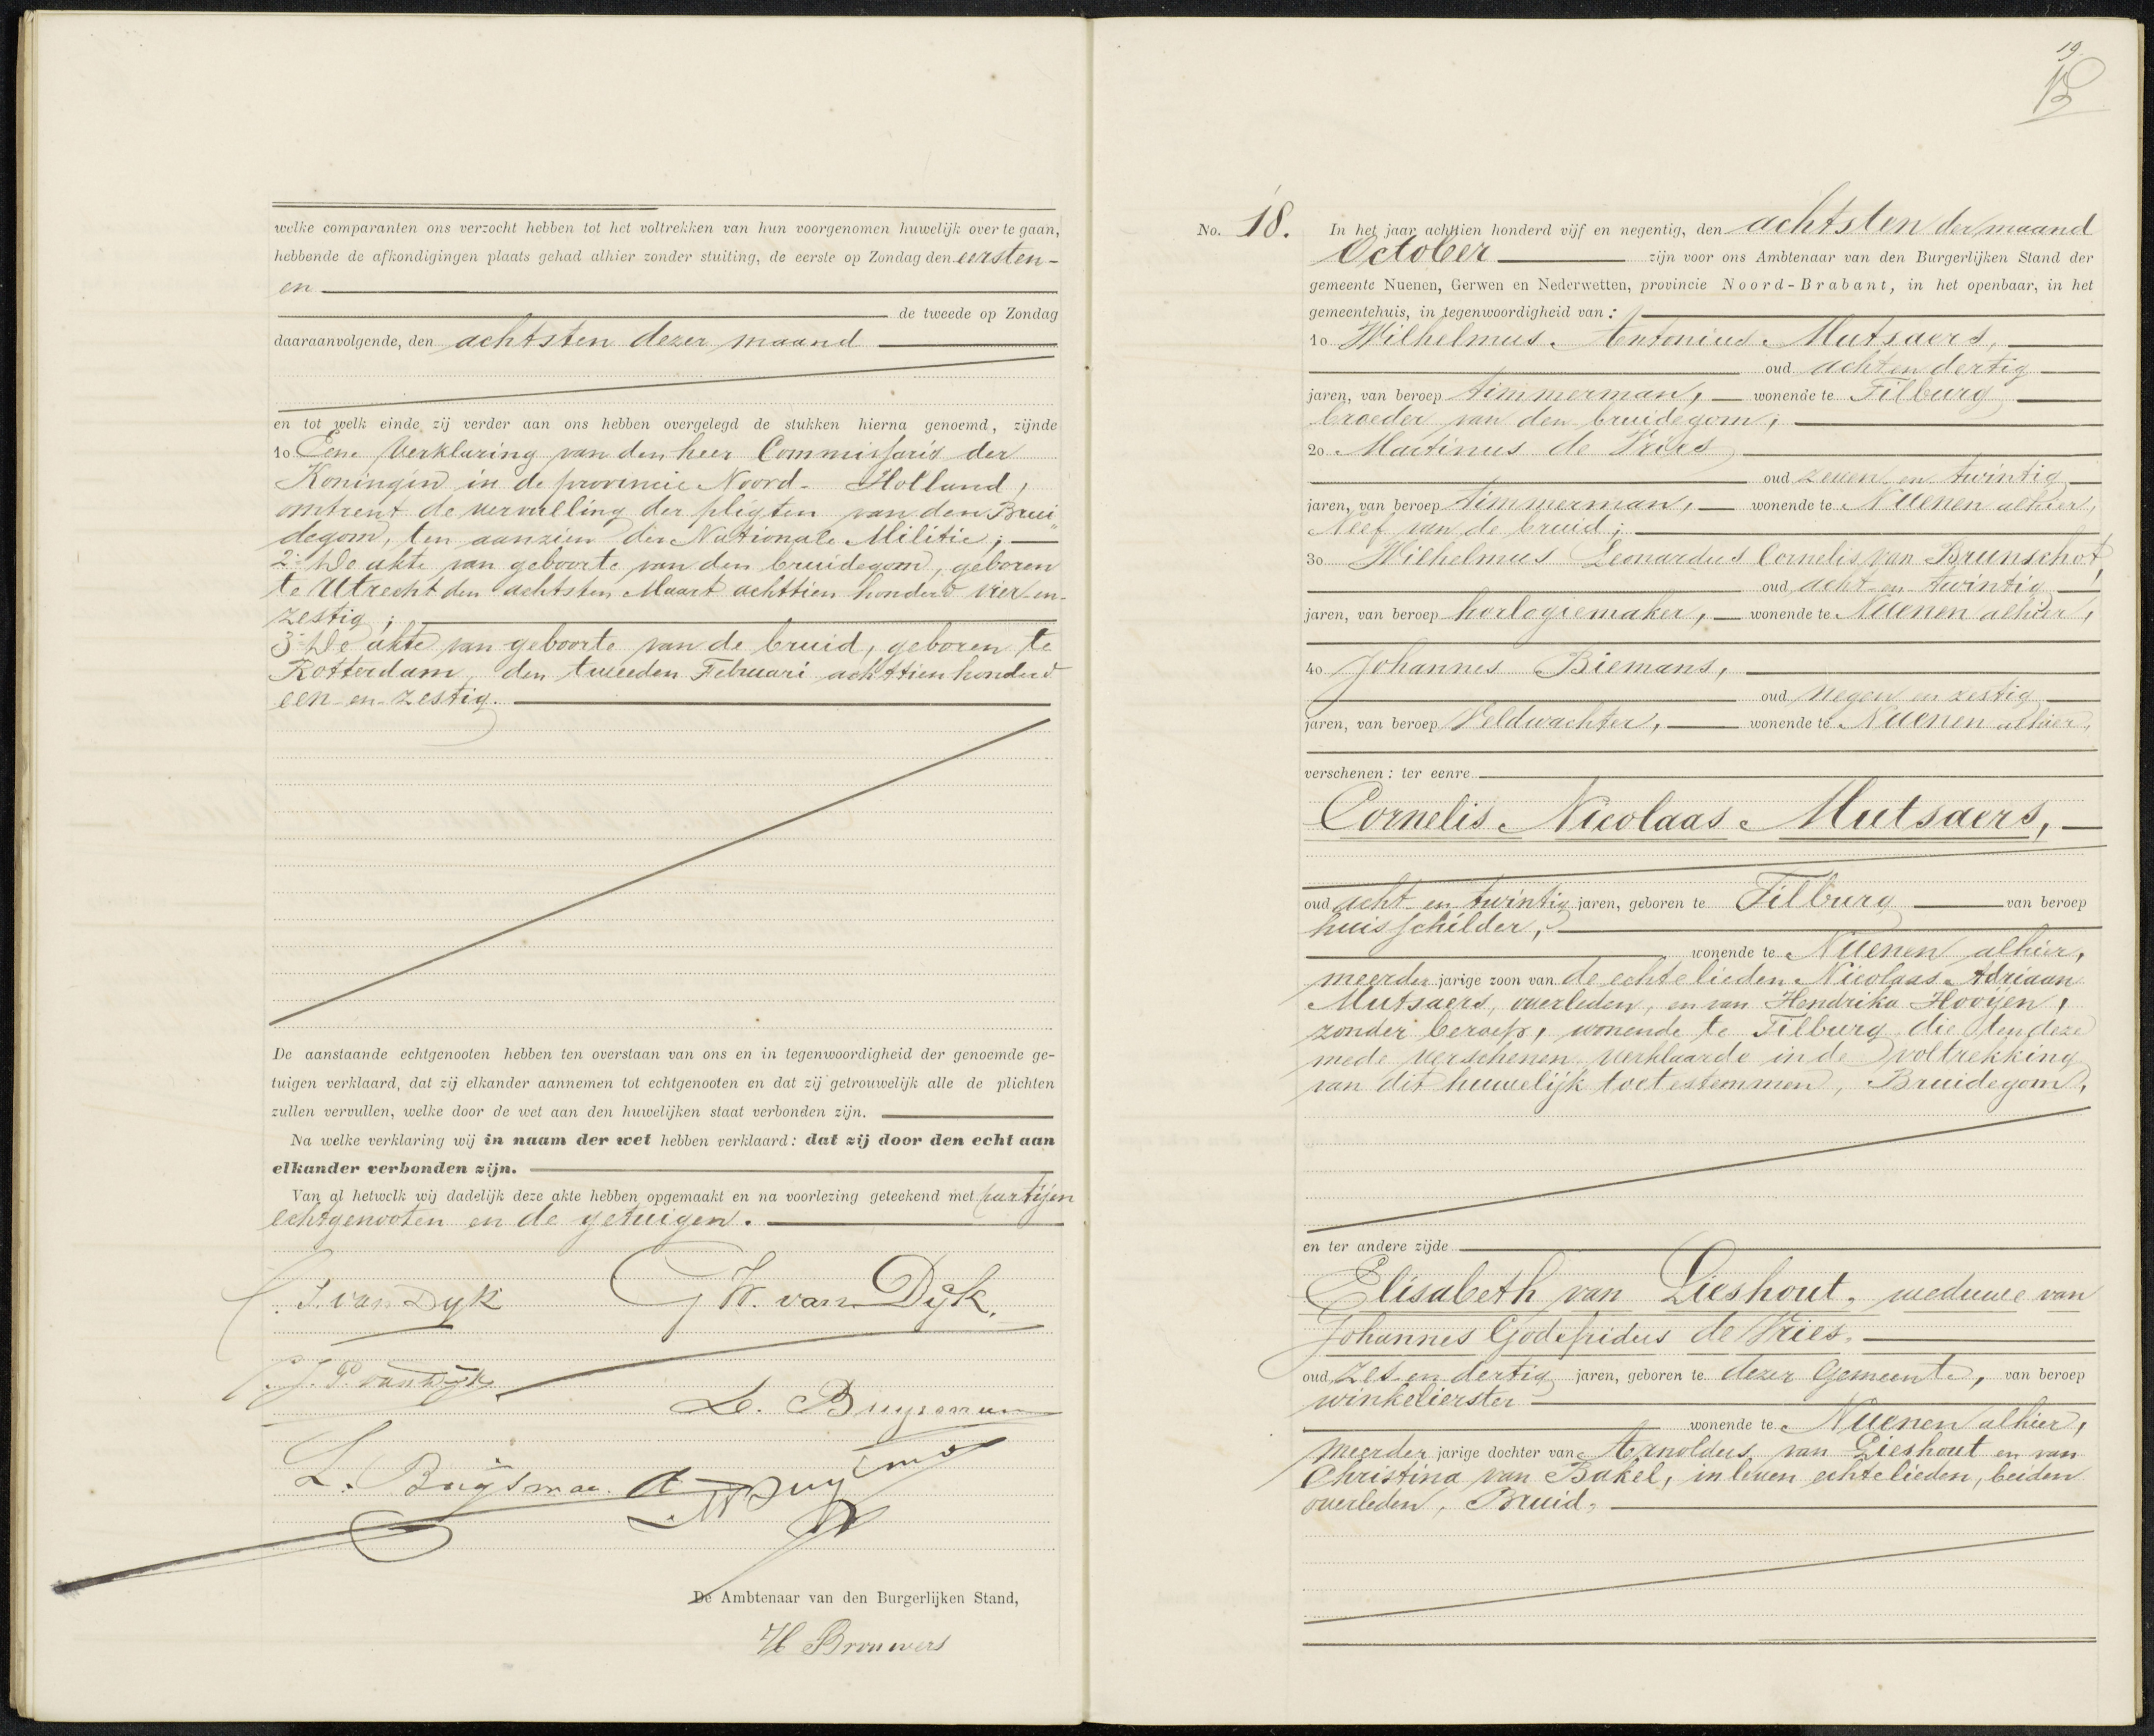 welke comparanten ons verzocht hebben tot het voltrekken van hun voorgenomen huwelijk over te gaan,
hebbende de afkondigingen plaats gehad alhier zonder stuiting, de eerste op Zondag den eersten
en
de tweede op Zondag
daaraanvolgende, den achtsten dezer maand
en tot welk einde zij verder aan ons hebben overgelegd de stukken hierna genoemd, zijnde
1o Eene Verklaring van den heer Commissaris der
Koningin in de provincie Noord-Holland,
omtrent de vervulling der pligten van den Brui
degom, ten aanzien der Nationale Militie;
2o De akte van geboorte van den bruidegom, geboren
te Utrecht den achtsten Maart achttien honderd vier-en-
zestig;
3o De akte van geboorte van de bruid, geboren te
Rotterdam, den tweeden Februari achttien honderd
een-en-zestig.
De aanstaande echtgenooten hebben ten overstaan van ons en in tegenwoordigheid der genoemde ge-
tuigen verklaard, dat zij elkander aannemen tot echtgenooten en dat zij getrouwelijk alle de plichten
zullen vervullen, welke door de wet aan den huwelijken staat verbonden zijn.
Na welke verklaring wij in naam der wet hebben verklaard: dat zij door den echt aan
elkander verbonden zijn.
Van al hetwelk wij dadelijk deze akte hebben opgemaakt en na voorlezing geteekend met partijen
echtgenooten en de getuigen.
J. van Dyk G W. van Dijk.
J. P. van Dijk
L. Buysman
L. Buijsma
De Ambtenaar van den Burgerlijken Stand,
H Brouwers
19
No. 18. In het jaar achttien honderd vijf en negentig, den achtsten der maand
October zijn voor ons Ambtenaar van den Burgerlijken Stand der
gemeente Nuenen, Gerwen en Nederwetten, provincie Noord-Brabant, in het openbaar, in het
gemeentehuis, in tegenwoordigheid van:
1o Wilhelmus Antonius Mutsaers,
oud acht en dertig
jaren, van beroep timmerman, wonende te Tilburg
broeder van den bruidegom;
2o Martinus de Vries
oud zeven en twintig
jaren, van beroep timmerman, wonende te Nuenen alhier,
Neef van de bruid;
3o Wilhelmus Leonardus Cornelis van Brunschot,
oud acht en twintig
jaren, van beroep horlogiemaker, wonende te Nuenen alhier,
4o Johannes Biemans,
oud negen en zestig
jaren, van beroep Veldwachter, wonende te Nuenen alhier,
verschenen: ter eenre
Cornelis Nicolaas Mutsaers,
oud acht en twintig jaren, geboren te Tilburg van beroep
huisschilder,
wonende te Nuenen alhier,
meerder jarige zoon van de echtelieden Nicolaas Adriaan
Mutsaers, overleden, en van Hendrika Hooijen,
zonder beroep, wonende te Tilburg die ten deze
mede verschenen verklaarde in de voltrekking
van dit huwelijk toetestemmen, Bruidegom,
en ter andere zijde
Elisabeth van Lieshout, weduwe van
Johannes Godefridus de Vries,
oud zes-en dertig jaren, geboren te dezer Gemeente, van beroep
winkelierster
wonende te Nuenen alhier,
meerder jarige dochter van Arnoldus van Lieshout en van
Christina van Bakel, in leven echtelieden, beiden
overleden, Bruid,